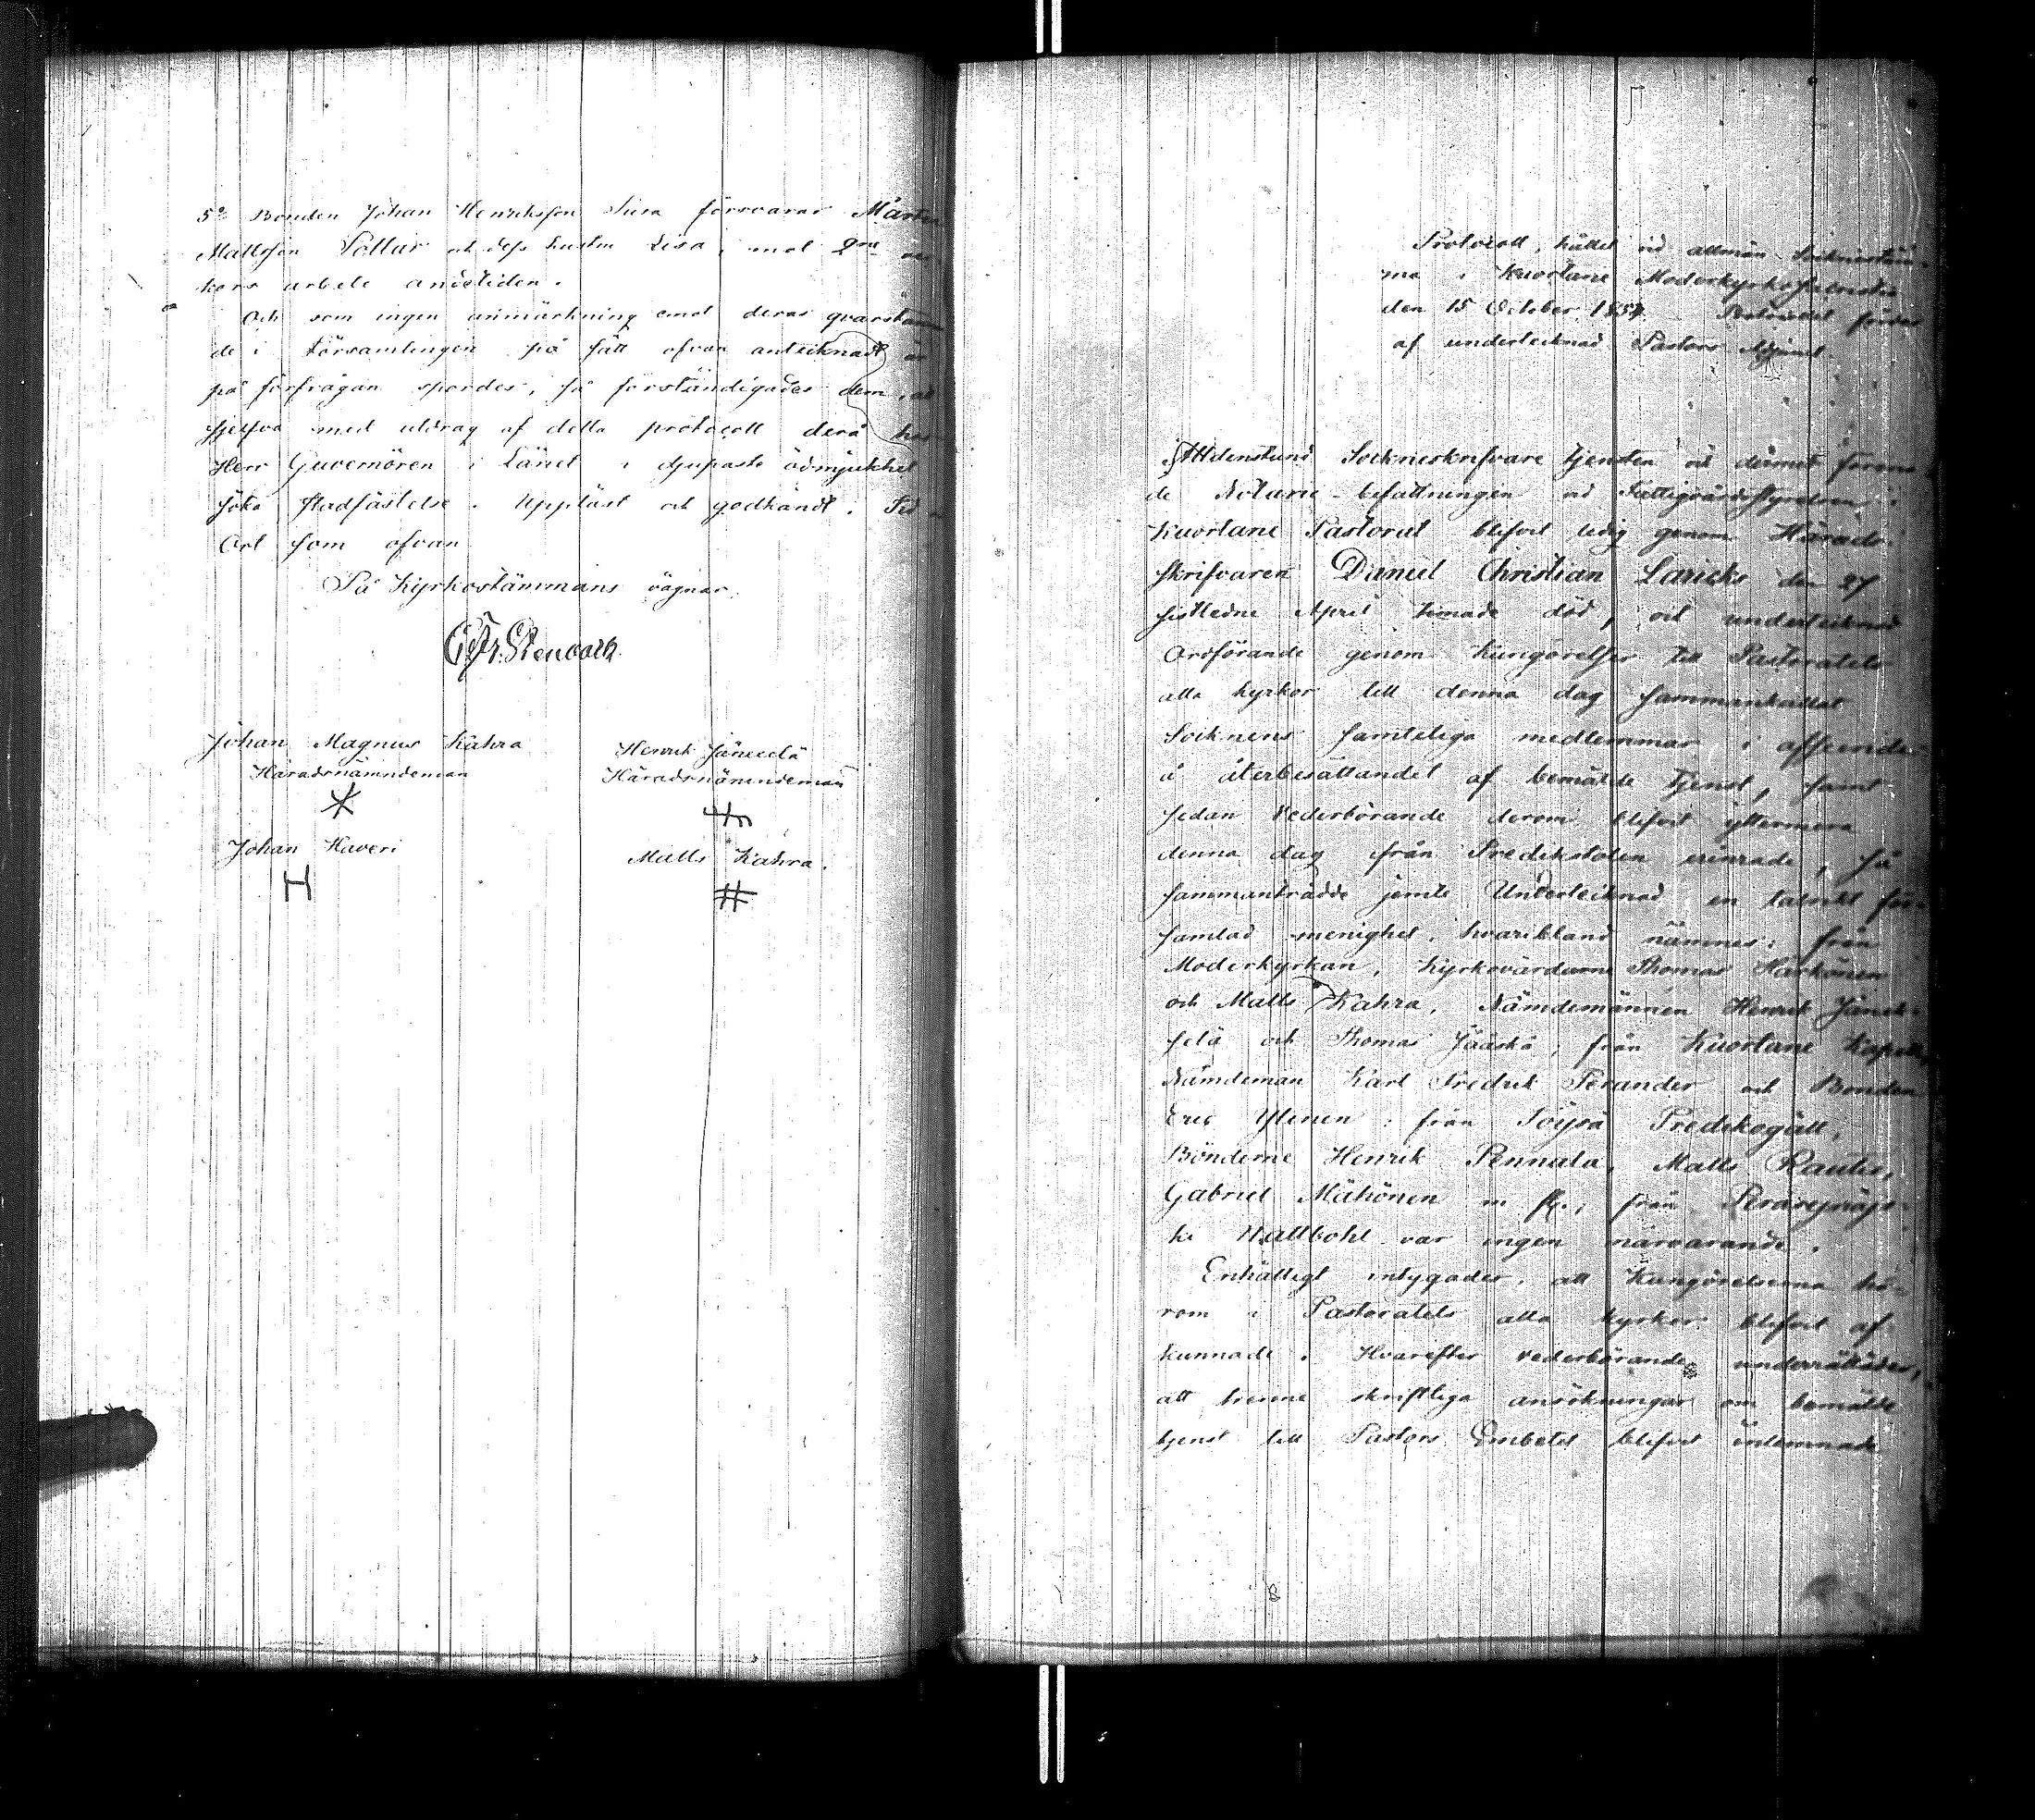 5o Bonden Johan Henriksson försvarar Mårten
Mattsson Pollari och dess hustru Lisa, mot 2ne vec-
kors arbete andetiden.
Och som ingen anmärkning emot deras qvarstan-
de i församlingen på sätt ofvan antecknadt är
på förfrågan spordes, så förständigades dem, att
sjelfva med utdrag af detta protocoll derå hos
Herr Guvernören i Länet i djupaste ödmjukhet
söka stadfästelse. Uppläst och godkändt. Tid
Ort som ofvan
På Kyrkostämmans vägnar.
C. Fr. Stenbäck
Johan Magnus Kahra Henrik Jäneselä
Häradsnämndeman Häradsnämndeman
Johan Haveri Matts Kahra.
Protocoll, hållet vid allmän Sockneståm-
ma i Kuortane Moderkyrkas
den 15 October 1854. Protocollet fördes
af undertecknad Pastors Adjunct.
Alldenstund Sockneskrifvare tjensten och dermed förena-
de Notarie-befattningen vid Fattigvårdsstyrelsen i
Kuortane Pastorat blifvit ledig genom Härads-
skrifvaren Daniel Christian Laricks den 27
sistledne April timade död, och undertecknad
Ordförande genom kungörelser till Pastoratets
alla kyrkor till denna dag sammankallat
Socknens samteliga medlemmar i afseende
å återbesättandet af bemälde tjenst, samt
sedan Vederbörande derom blifvit yttermera
denna dag från Predikstolen erinrade, så
sammanträdde jemte Undertecknad en talrikt för-
samlad menighet, hvaribland nämnes: från
Moderkyrkan, Kyrkovärdarne Thomas Härkönen
och Matts Kahra, Nämdemännen Henrik Jäne-
selä och Thomas Jääskä; från Kuortane Kapell,
Nämdeman Karl Fredrik Terander och Bonden
Eric Ylinen; från Töysä Predikogäll,
Bönderne Henrik Pennala, Matts Rauter,
Gabriel Mähönen m fl.; från Peräseinäjo-
ki var ingen närvarande.
Enhälligt intygades, att Kungörelserna hä-
rom i Pastoratets alla kyrkor blifvit af-
kunnade. Hvarefter vederbörande underrättades,
att trenne skriftliga ansökningar om bemälde
tjenst till Pastors Embetet blifvit inlemnade